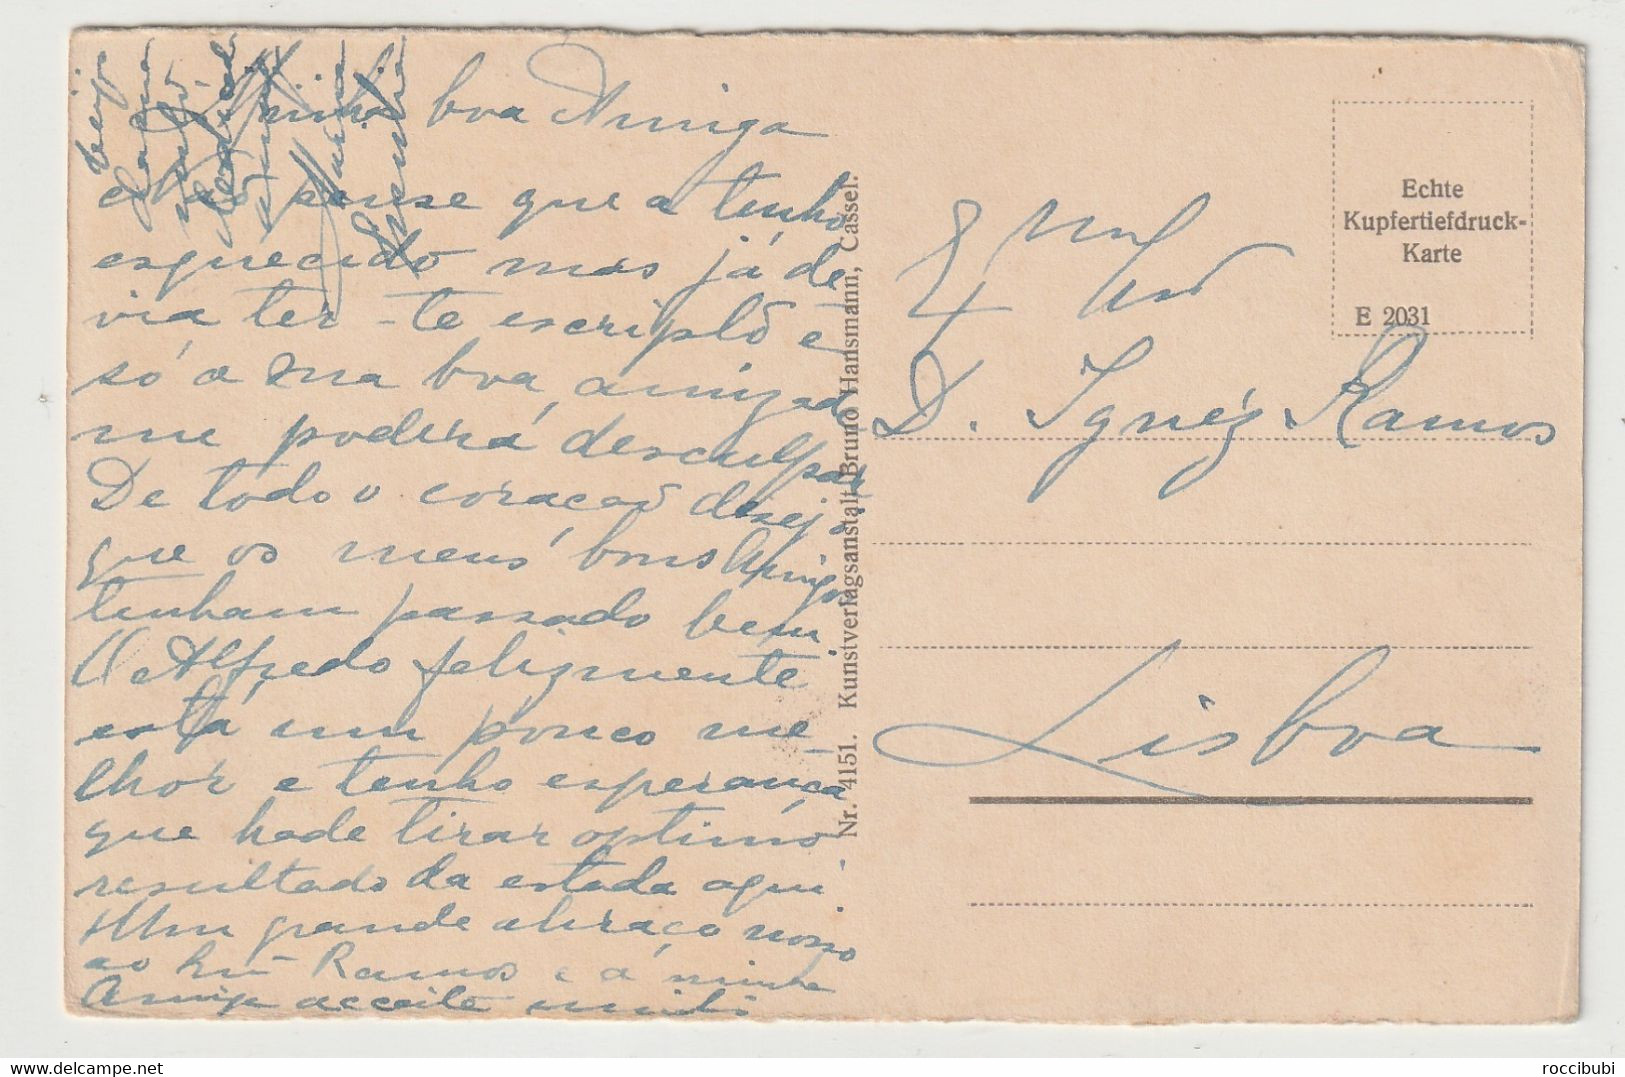 Minha boa Amiga
Não pense que a tenho
esquecido mas já de
via ter-te escripto e
só a sua boa amizade
me poderá desculpar
De todo o coração desejo
que os meus bons Amigos
tenham passado bem
O Alfredo felizmente
está um pouco me-
lhor e tenho esperança
que hade tirar optimo
resultado da estada aqui
Um grande abraço nosso
ao Snr Ramos e á minha
Amiga acceite muitos
beijos
Nr. 4151. Kunstverlagsanstalt Bruno Hansmann, Cassel.
Echte
Kupfertiefdruck-
Karte
E 2031
D. Ignéz Ramos
Lisboa
roccibubi